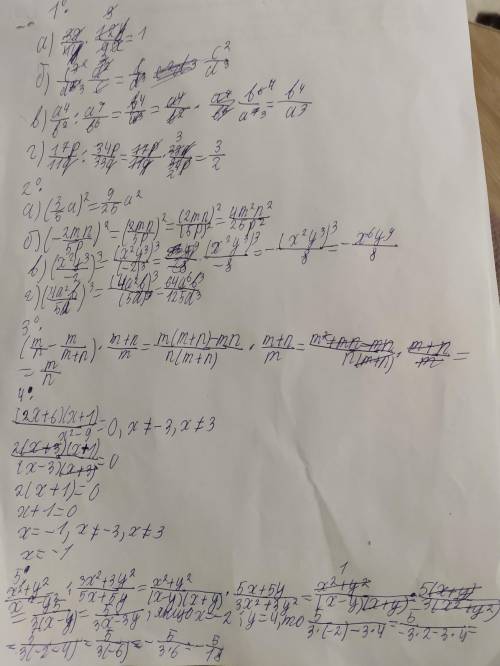 1°
а) · = 1
б) · = = c²/d³
в) a⁴/b² : a⁷/b⁶ = b⁴/a³ = a⁴/b² · = b⁴/a³
г) 17p/11q : 34p/33q = 17p/11q · 33q/34p = 3/2
2°
а) (3/5 a)² = 9/25 a²
б) (-2mn/5p)² = (2mn/5p)² = (2mn)²/(5p)² = 4m²n²/25p²
в) (x²y³/-2)³ = (x²y³)³/(-2)³ = (x²y³)³/-8 = -(x²y³)³/8 = -x⁶y⁹/8
г) (4a²b/5d)³ = (4a²b)³/(5d)³ = 64a⁶b³/125d³
3°
(m/n - m/(m+n)) · (m+n)/m = (m(m+n)-mn)/(n(m+n)) · (m+n)/m = (m²+mn-mn)/(n(m+n)) · (m+n)/m =
= m/n
4°
(2x+6)(x+1)/(x²-9) = 0, x ≠ -3, x ≠ 3
2(x+3)(x+1)/((x-3)(x+3)) = 0
2(x+1) = 0
x+1 = 0
x = -1, x ≠ -3, x ≠ 3
x = -1
5°
(x²+y²)/(x²-y²) : (3x²+3y²)/(5x+5y) = (x²+y²)/((x-y)(x+y)) · (5x+5y)/(3x²+3y²) = (x²+y²)/((x-y)(x+y)) · 5(x+y)/(3(x²+y²))
= 5/(3(x-y)) = 5/(3x-3y), x = -2; y = 4, то 5/(3·(-2)-3·4) = 5/(-3·2-3·4) =
= 5/(3(-2-4)) = 5/(3(-6)) = -5/(3·6) = -5/18